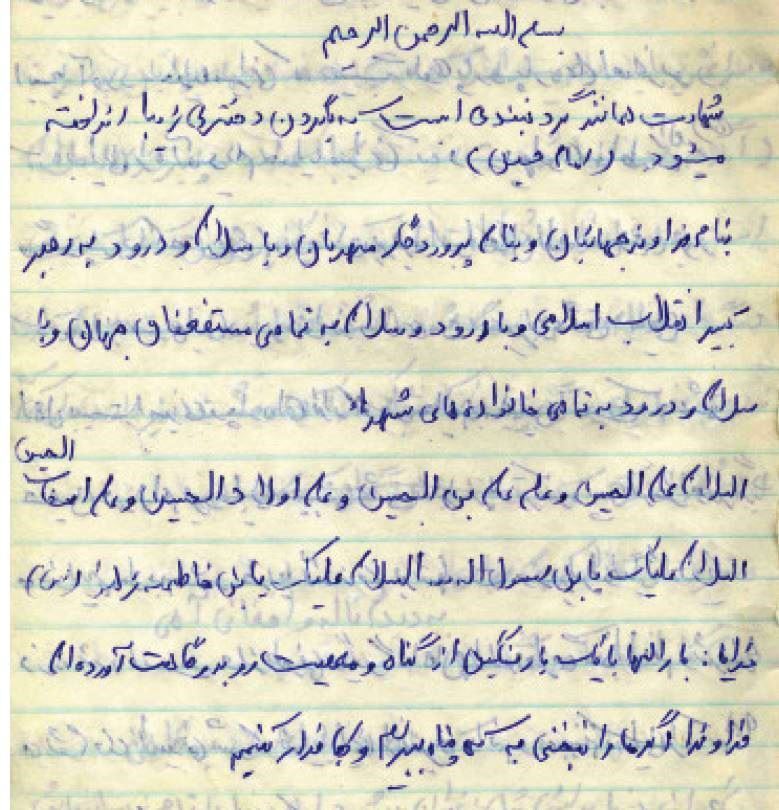 بسم الله الرحمن الرحیم
شهادت همانند گردنبندی است که بگردن دختری زیبا انداخته
میشود (امام خمینی)
بنام خداوند جهانیان و بنام پروردگار مهربان و با سلام و درود به رهبر
کبیر انقلاب اسلامی و با درود و سلام به تمامی مستضعفان جهان و با
سلام و درود به تمامی خانواده های شهداء
السلام علی الحسین و علی علی بن الحسین و علی اولاد الحسین و علی اصحاب الحسین
السلام علیک یابن رسول الله السلام علیک یابن فاطمه
خدایا: بارالها با یک بار سنگین از گناه و معصیت رو بدرگاهت آورده ام
خداوندا اگر ما را نبخشی به که پناه ببریم و کجا فرار کنیم